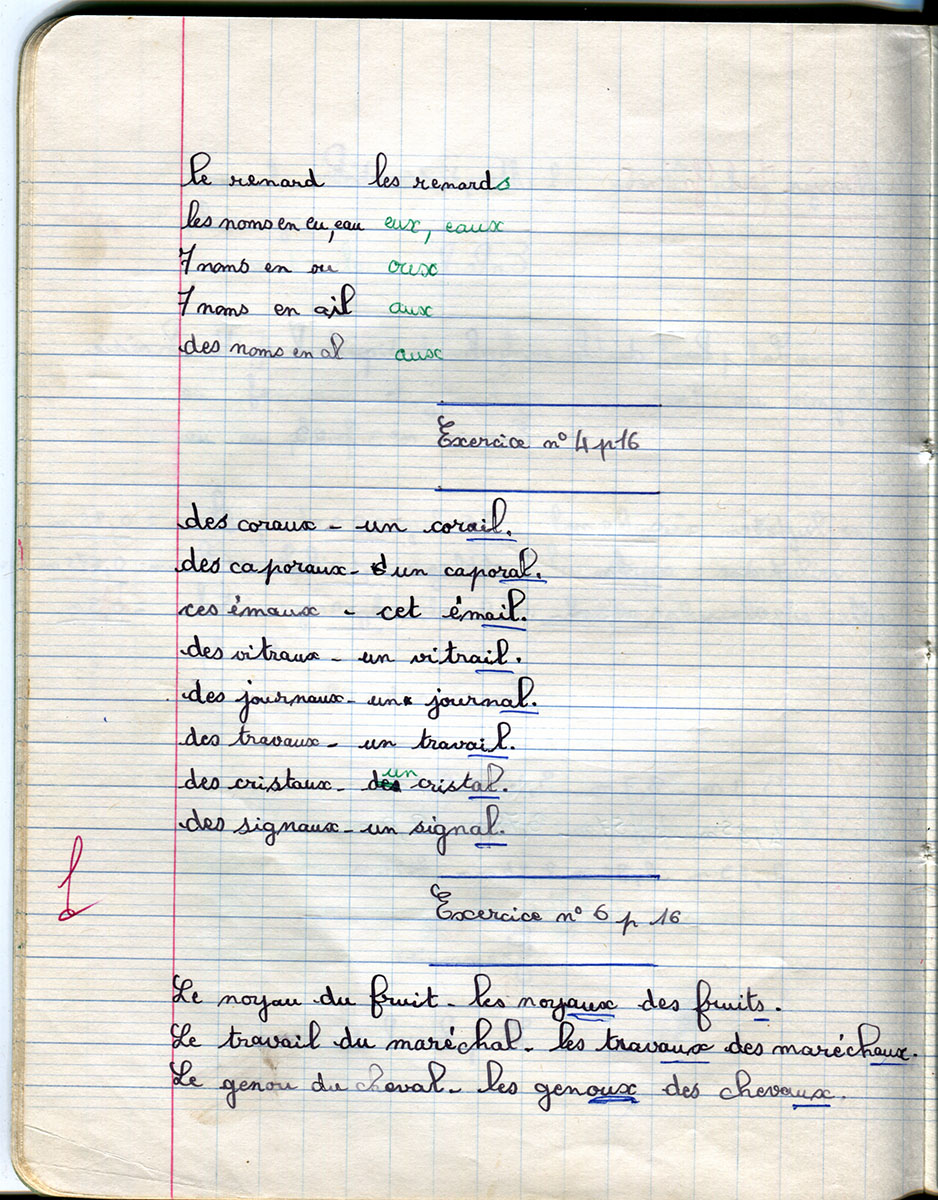 le renard les renards
les noms en eu, eau eux, eaux
7 noms en ou oux
7 noms en ail aux
des noms en al aux
Exercice n° 4 p 16
des coraux - un corail.
des caporaux - un caporal.
ces émaux - cet émail.
des vitraux - un vitrail.
des journaux - un journal.
des travaux - un travail.
des cristaux - un cristal.
des signaux - un signal.
Exercice n° 6 p 16
Le noyau du fruit - les noyaux des fruits.
Le travail du maréchal - les travaux des maréchaux.
Le genou du cheval - les genoux des chevaux.